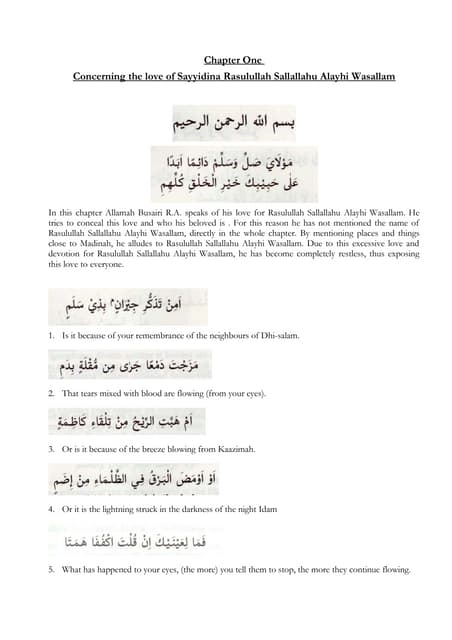 Chapter One
Concerning the love of Sayyidina Rasulullah Sallallahu Alayhi Wasallam
بسم الله الرحمن الرحيم
مَوْلَايَ صَلِّ وَسَلِّمْ دَائِمًا اَبَدًا
عَلٰى حَبِيْبِكَ خَيْرِ الْخَلْقِ كُلِّهِمِ
In this chapter Allamah Busairi R.A. speaks of his love for Rasulullah Sallallahu Alayhi Wasallam. He
tries to conceal this love and who his beloved is . For this reason he has not mentioned the name of
Rasulullah Sallallahu Alayhi Wasallam, directly in the whole chapter. By mentioning places and things
close to Madinah, he alludes to Rasulullah Sallallahu Alayhi Wasallam. Due to this excessive love and
devotion for Rasulullah Sallallahu Alayhi Wasallam, he has become completely restless, thus exposing
this love to everyone.
اَمِنْ تَذَكُّرِ جِيْرَانٍ بِذِيْ سَلَمٍ
1. Is it because of your remembrance of the neighbours of Dhi-salam.
مَزَجْتَ دَمْعًا جَرٰى مِنْ مُّقْلَةٍ بِدَمٍ
2. That tears mixed with blood are flowing (from your eyes).
اَمْ هَبَّتِ الرِّيْحُ مِنْ تِلْقَاءِ كَاظِمَةٍ
3. Or is it because of the breeze blowing from Kaazimah.
اَوْ اَوْمَضَ الْبَرْقُ فِي الظَّلْمَاءِ مِنْ إِضَمٍ
4. Or it is the lightning struck in the darkness of the night Idam
فَمَا لِعَيْنَيْكَ اِنْ قُلْتَ اكْفُفَا هَمَتَا
5. What has happened to your eyes, (the more) you tell them to stop, the more they continue flowing.